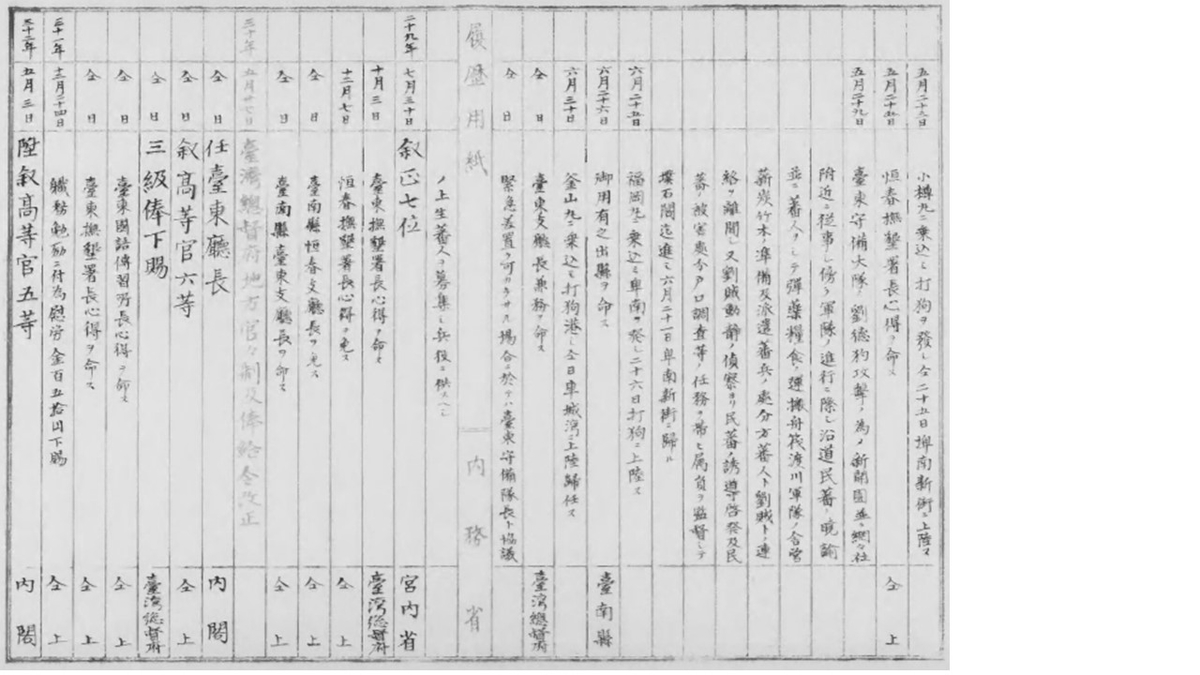 五月二十三日 小樽丸ニ乗込ミ打狗ヲ發シ仝二十五日埤南新街ニ上陸ス
五月二十五日 恒春撫墾署長心得ヲ命ス 仝上
五月二十九日 臺東守備大隊ノ劉德杓攻擊ノ為メ新開園並ニ網々社
附近ニ従事シ傍ラ軍隊ノ進行ニ際シ沿道民蕃ノ曉諭
並ニ蕃人ヲシテ彈藥糧食ノ運搬舟筏渡川軍隊ノ舎營
薪炭竹木ノ準備及派遣蕃兵ノ處分方蕃人ト劉賊トノ連
絡ヲ離間シ又劉賊動静ノ偵察ヨリ民蕃ノ誘導啓発及民
蕃ノ被害処分戸口調査等ノ任務ヲ帯ヒ属員ヲ監督シテ
璞石閣迄進ミ六月二十一日卑南新街ニ歸ル
六月二十五日 福岡丸ニ乗込ミ卑南ヲ発シ二十六日打狗ニ上陸ス
六月二十六日 御用有之出縣ヲ命ス 臺南縣
六月三十日 釜山丸ニ乗込ミ打狗港シ仝日車城湾ニ上陸歸任ス
仝日 臺東支廳長兼務ヲ命ス 臺湾總督府
仝日 緊急差置ク可カラサル場合ニ於テハ臺東守備隊長ト協議
履歴用紙 内務省
ノ上生蕃人ヲ募集シ兵役ニ供スヘシ
二十九年七月三十日 叙正七位 宮内省
十月三日 臺東撫墾署長心得ヲ命ス 臺湾總督府
十二月七日 恒春撫墾署長心得ヲ免ス 仝上
仝日 臺南縣恒春支廳長ヲ免ス 仝上
仝日 臺南縣臺東支廳長ヲ命ス 仝上
三十年五月廿七日 臺湾總督府地方官々制及俸給令改正
仝日 任臺東廳長 内閣
仝日 叙高等官六等 仝上
仝日 三級俸下賜 臺湾總督府
仝日 臺東國語傳習所長心得ヲ命ス 仝上
仝日 臺東撫墾署長心得ヲ命ス 仝上
三十一年十二月二十四日 職務勉励ニ付為慰労金百五拾円下賜 仝上
三十二年五月三日 陞叙高等官五等 内閣